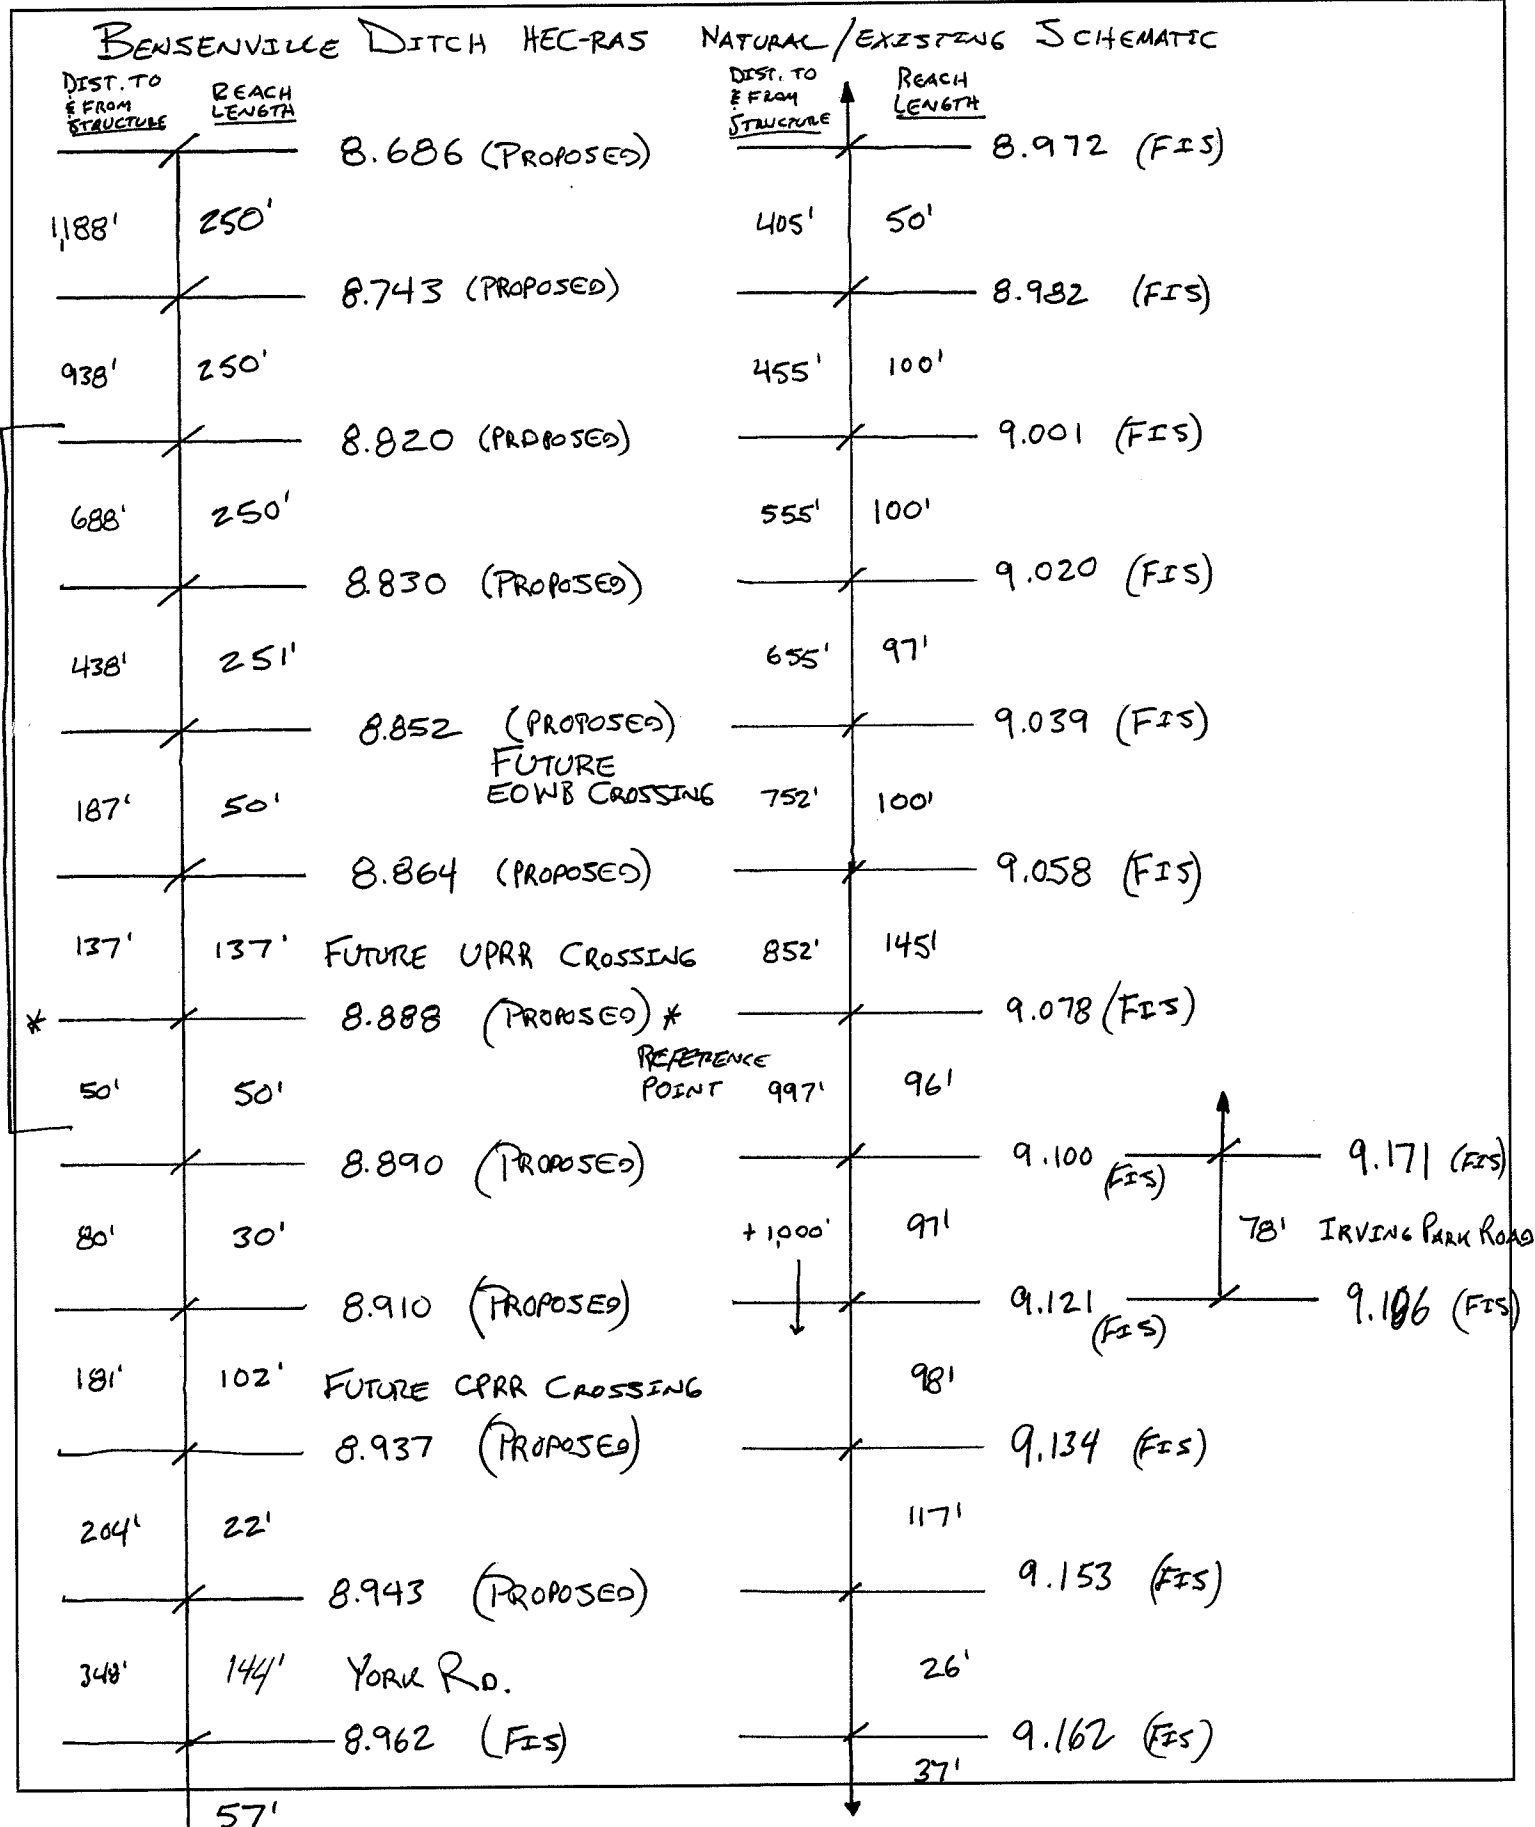 BENSENVILLE DITCH HEC-RAS NATURAL/EXISTING SCHEMATIC
DIST. TO
& FROM
STRUCTURE
REACH
LENGTH
8.686 (PROPOSED)
1,188' 250'
8.743 (PROPOSED)
938' 250'
8.820 (PROPOSED)
688' 250'
8.830 (PROPOSED)
438' 251'
8.852 (PROPOSED)
FUTURE
EOWB CROSSING
187' 50'
8.864 (PROPOSED)
137' 137' FUTURE UPRR CROSSING
* 8.888 (PROPOSED) *
REFERENCE
POINT
50' 50'
8.890 (PROPOSED)
80' 30'
8.910 (PROPOSED)
181' 102' FUTURE CPRR CROSSING
8.937 (PROPOSED)
204' 22'
8.943 (PROPOSED)
348' 144' YORK RD.
8.962 (FIS)
57'
DIST. TO
& FROM
STRUCTURE
REACH
LENGTH
8.972 (FIS)
405' 50'
8.982 (FIS)
455' 100'
9.001 (FIS)
555' 100'
9.020 (FIS)
655' 97'
9.039 (FIS)
752' 100'
9.058 (FIS)
852' 145'
9.078 (FIS)
997' 96'
9.100 (FIS)
+1,000' 97'
9.121 (FIS)
98'
9.134 (FIS)
117'
9.153 (FIS)
26'
9.162 (FIS)
37'
9.171 (FIS)
78' IRVING PARK ROAD
(FIS)